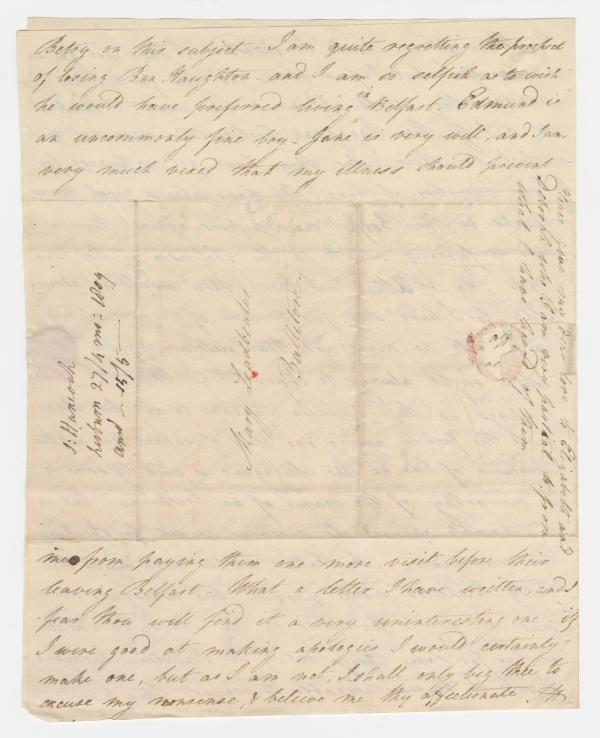 Betsy on this subject. I am quite regretting the prospect
of losing Ben Haughton - and I am so selfish as to wish
he would have preferred living in Belfast. Edmund is
an uncommonly fine boy. Jane is very well, and I am
very much vexed that my illness should prevent
me from paying them one more visit before their
leaving Belfast - What a letter I have written, and I
fear thou will find it a very uninteresting one - if
I were good at making apologies I would certainly
make one, but as I am not, I shall only beg thee to
excuse my nonsense, & believe me thy affectionate
Mary Leadbeater
Ballitore
S: Hancock
Lisburn 27/4 mo: 1809
and 15/5
give my dear love to Elizabeth and
Deborah who I am very partial to from
what I have heard of them